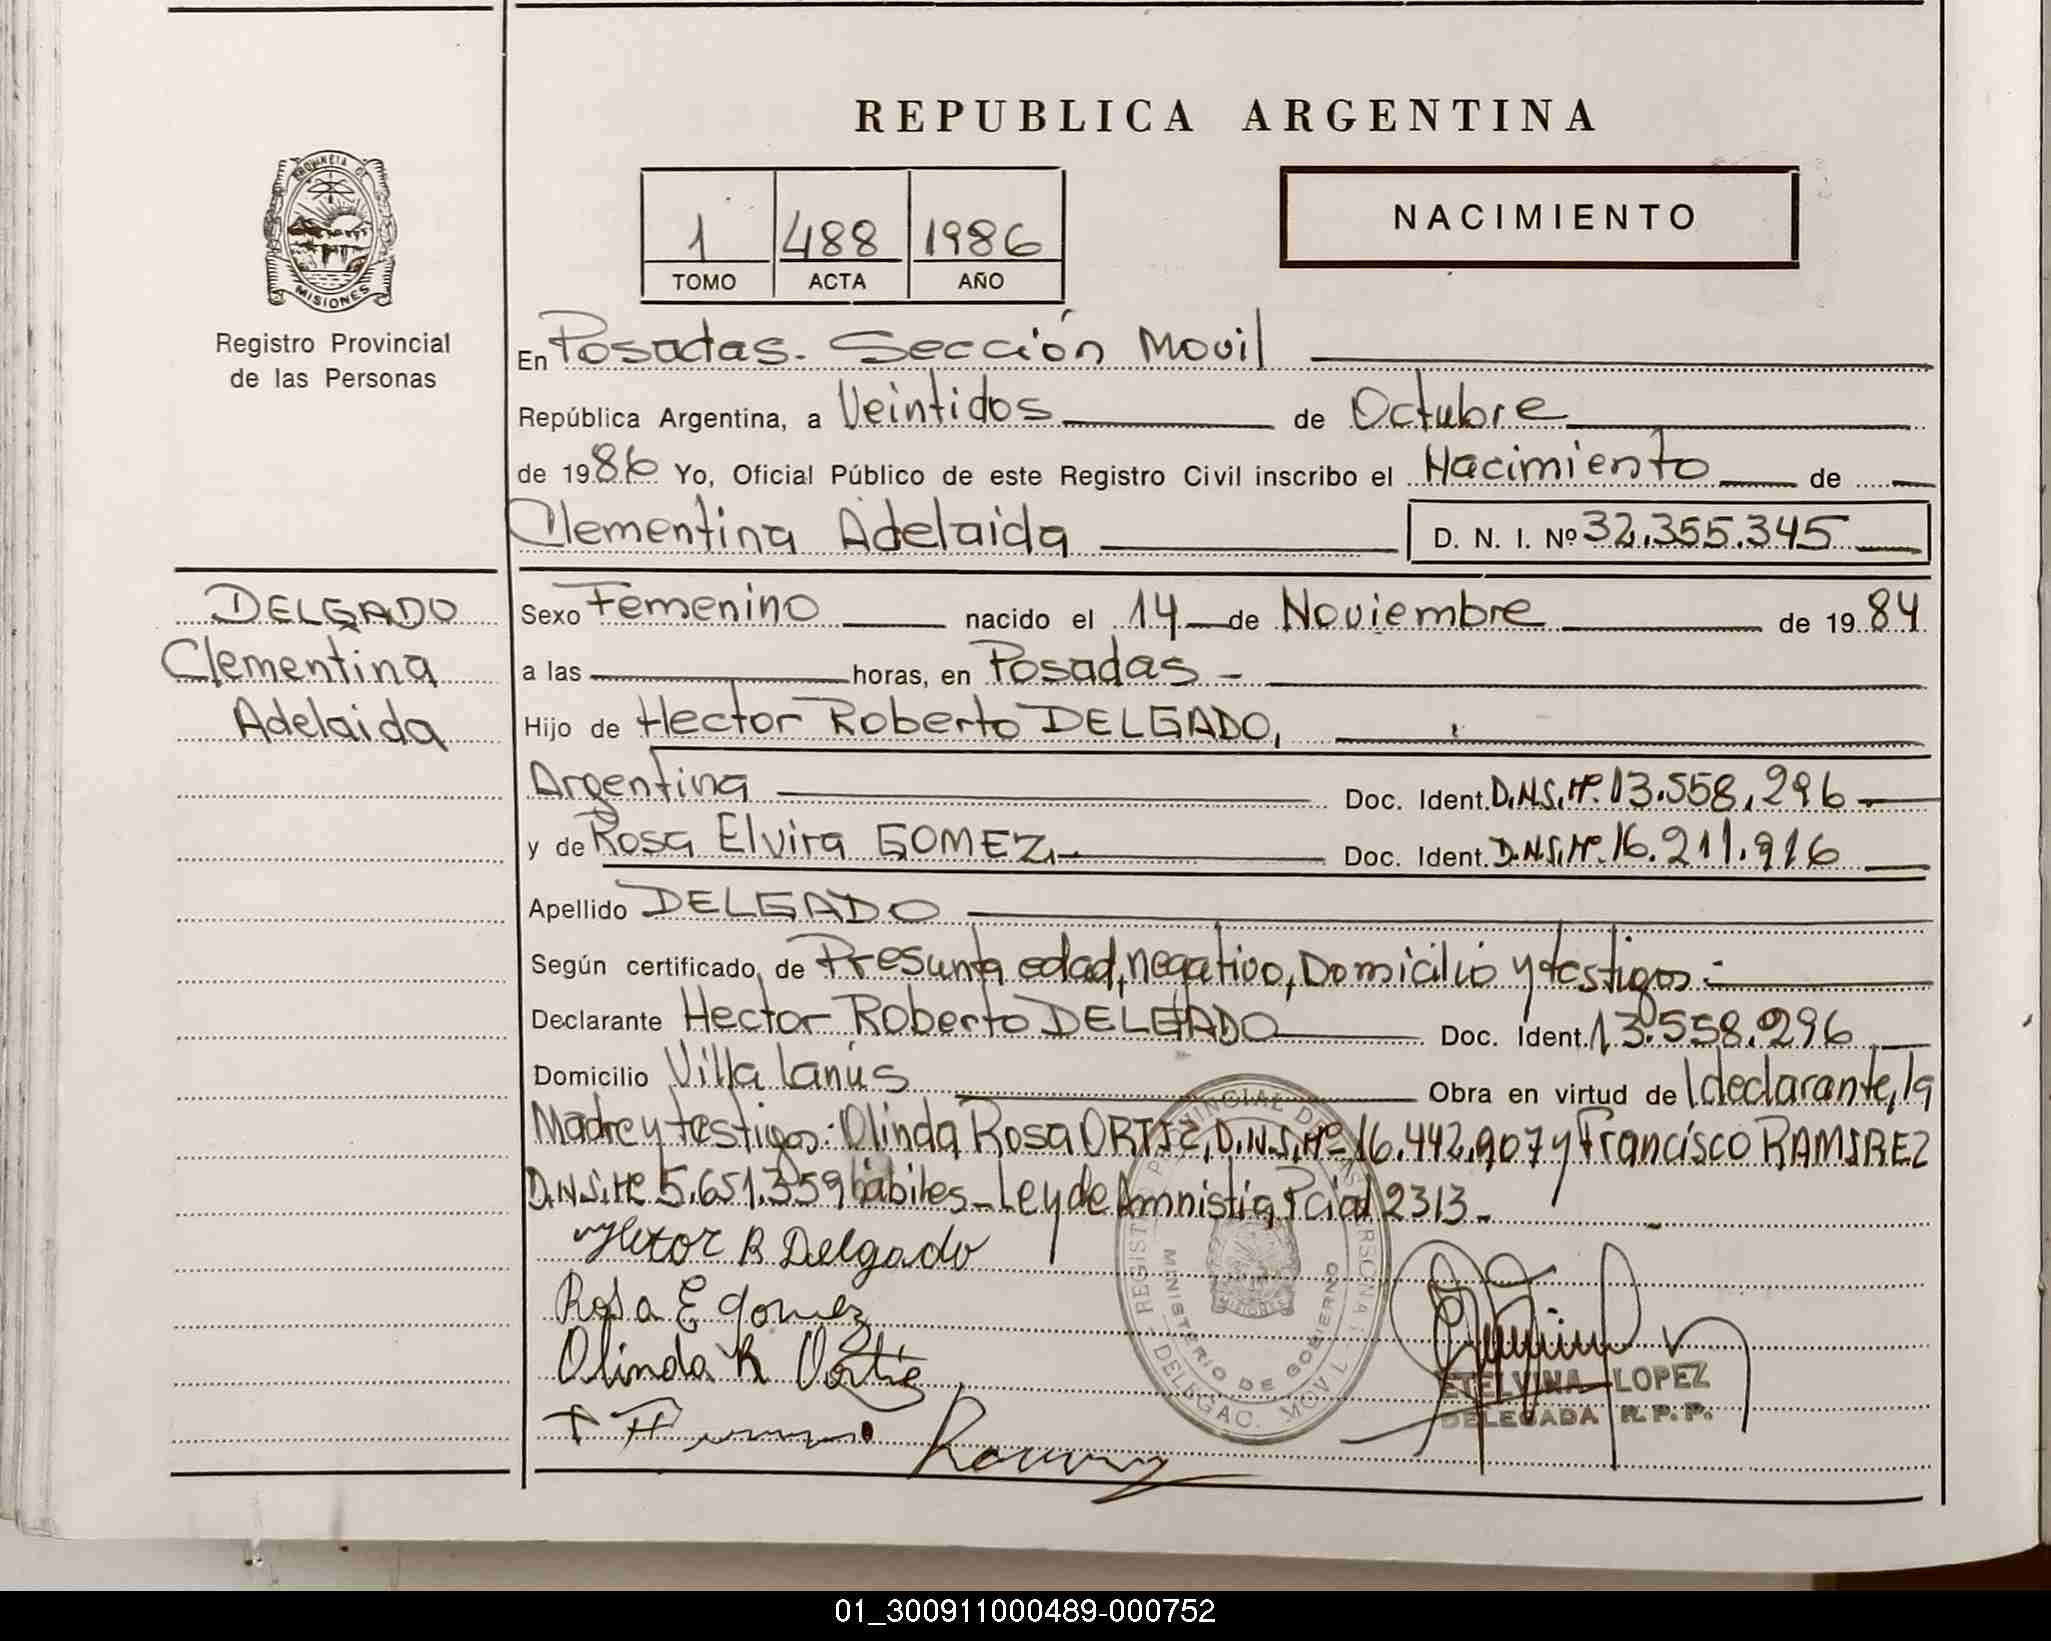 REPUBLICA ARGENTINA
PROVINCIA DE
MISIONES
Registro Provincial
de las Personas
1 488 1986
TOMO ACTA AÑO
NACIMIENTO
En Posadas. Sección Movil
República Argentina, a Veintidos de Octubre
de 1986 Yo, Oficial Público de este Registro Civil inscribo el Nacimiento de
Clementina Adelaida D. N. I. Nº 32.355.345
DELGADO
Clementina
Adelaida
Sexo Femenino nacido el 14 de Noviembre de 1984
a las horas, en Posadas -
Hijo de Hector Roberto DELGADO,
Argentina Doc. Ident. D.N.I. Nº. 13.558.296
y de Rosa Elvira GOMEZ. Doc. Ident. D.N.I. Nº. 16.211.916
Apellido DELGADO
Según certificado, de Presunta edad, negativo, Domicilio y testigos.-
Declarante Hector Roberto DELGADO Doc. Ident. 13.558.296
Domicilio Villa Lanús Obra en virtud de l declarante, la
Madre y testigos: Olinda Rosa ORTIZ, D.N.I. Nº 16.442.907 y Francisco RAMIREZ
D.N.I. Nº 5.651.359 hábiles - Ley de Amnistia Pcial 2313.-
Hector R Delgado
Rosa E gomez
Olinda R Ortiz
REGISTRO PROVINCIAL DE LAS PERSONAS
MINISTERIO DE GOBIERNO
DELEGAC. MOVIL
ETELVINA LOPEZ
DELEGADA R. P. P.
01_300911000489-000752